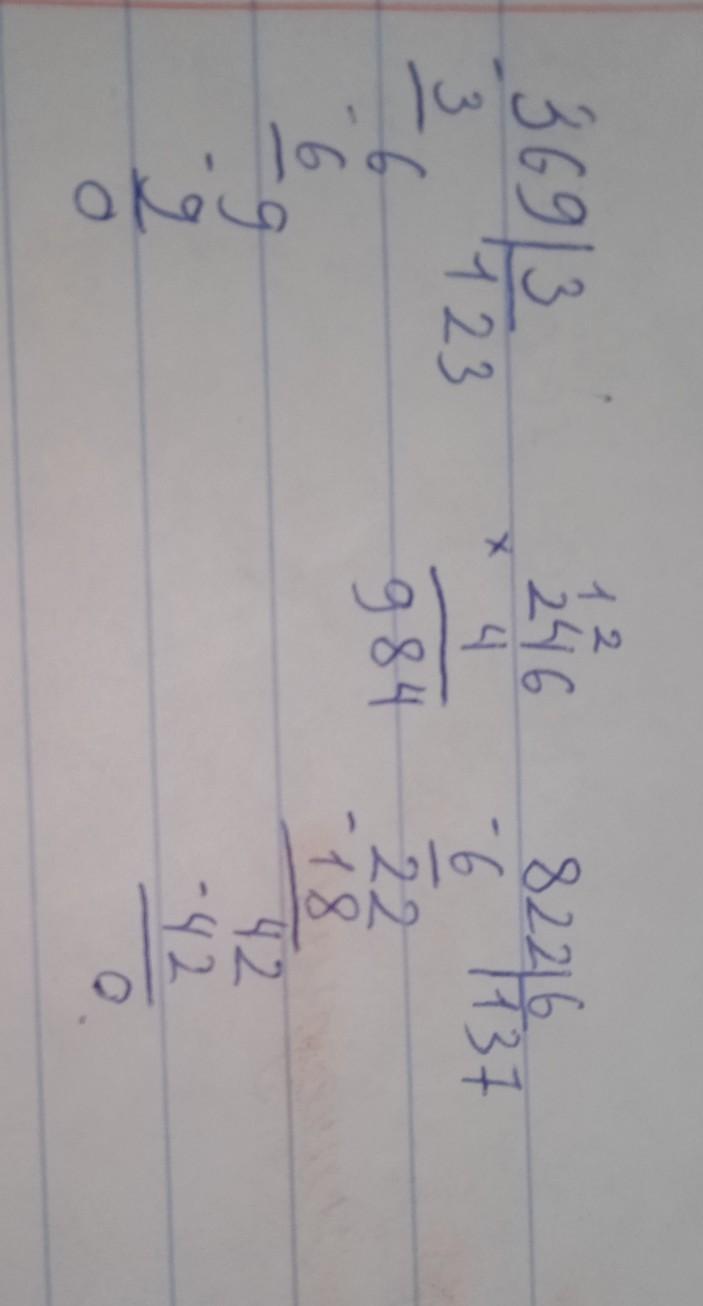 - 369 | 3
3 123
6
- 6
9
- 9
0
12
246
×
4
984
822 | 6
- 6 137
22
- 18
42
- 42
0